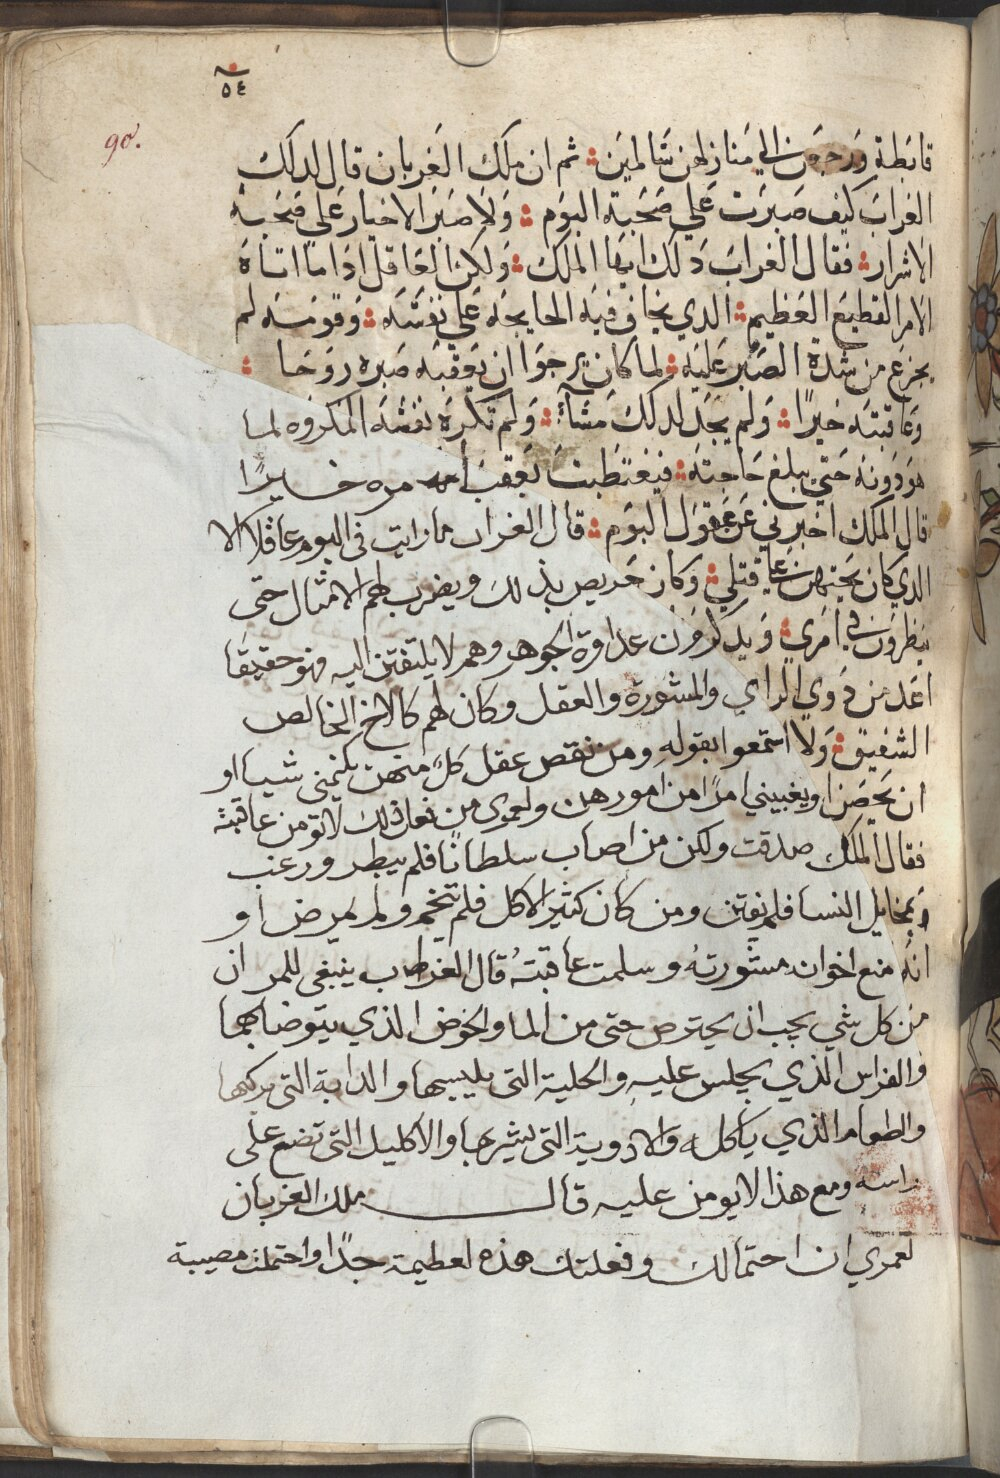 ٥٤
90.
قاطبة ورجعون الي منازلهن سالمين ثم ان ملك الغربان قال لدلك
الغراب كيف صبرت علي صحبة البوم ولا صبر الاخيار علي صحبة
الاشرار فقال الغراب دلك ايها الملك ولكن العاقل ادا ما اتاه
الامر الفظيع العظيم الدي يخاف فيه الجايحه علي نفسه وقومه لم
يجزع من شدة الصبر عليه لما كان يرجوا ان يعقبه صبره روحا
وعاقبته خيرًا ولم يجد لدلك مسآ ولم تكره نفسه المكروه لما
هو دونه حتي يبلغ حاجته فيغتبط بعقب امره خيرًا
قال الملك اخبرني عن عقول البوم قال الغراب ما رايت في البوم عاقلا الا
الدي كان يجتهد علي قتلي وكان حريص بذلك ويضرب لهم الامثال حتى
ينظرون في امري ويدكرون عداوة الجوهر وهم لا يلتفتن اليه فهو حقيقا
اعد من دوي الراي والمشورة والعقل وكان لهم كالاخ الخالص
الشفيق ولا استمعوا بقوله ومن نقص عقل كل منهن يكتمنى شيا او
ان يحصن او يغبيني امرًا من امورهن ولعمري من فعل ذلك لا تومن عاقبته
فقال الملك صدقت ولكن من اصاب سلطانًا فلم يبطر ورغب
بمخايل النسا فلم يفتن ومن كان كثير الاكل فلم يتخم ولم يمرض او
انه منع اخوانه مشورته وسلمت عاقبته قال الغراب ينبغي للمر ان
من كل شي يجب ان يحترص حتى من الما والحوض الذي يتوضا بهما
والفراس الذي يجلس عليه والحلية التي يلبسها والدابة التي يركبها
والطعام الذي ياكله والادوية التي يشربها والاكليل التي تضع على
راسه ومع هذا لا يومن عليه قال ملك الغربان
لعمري ان احتمالك وفعلتك هذه لعظيمة جدًا واحتملت مصيبة